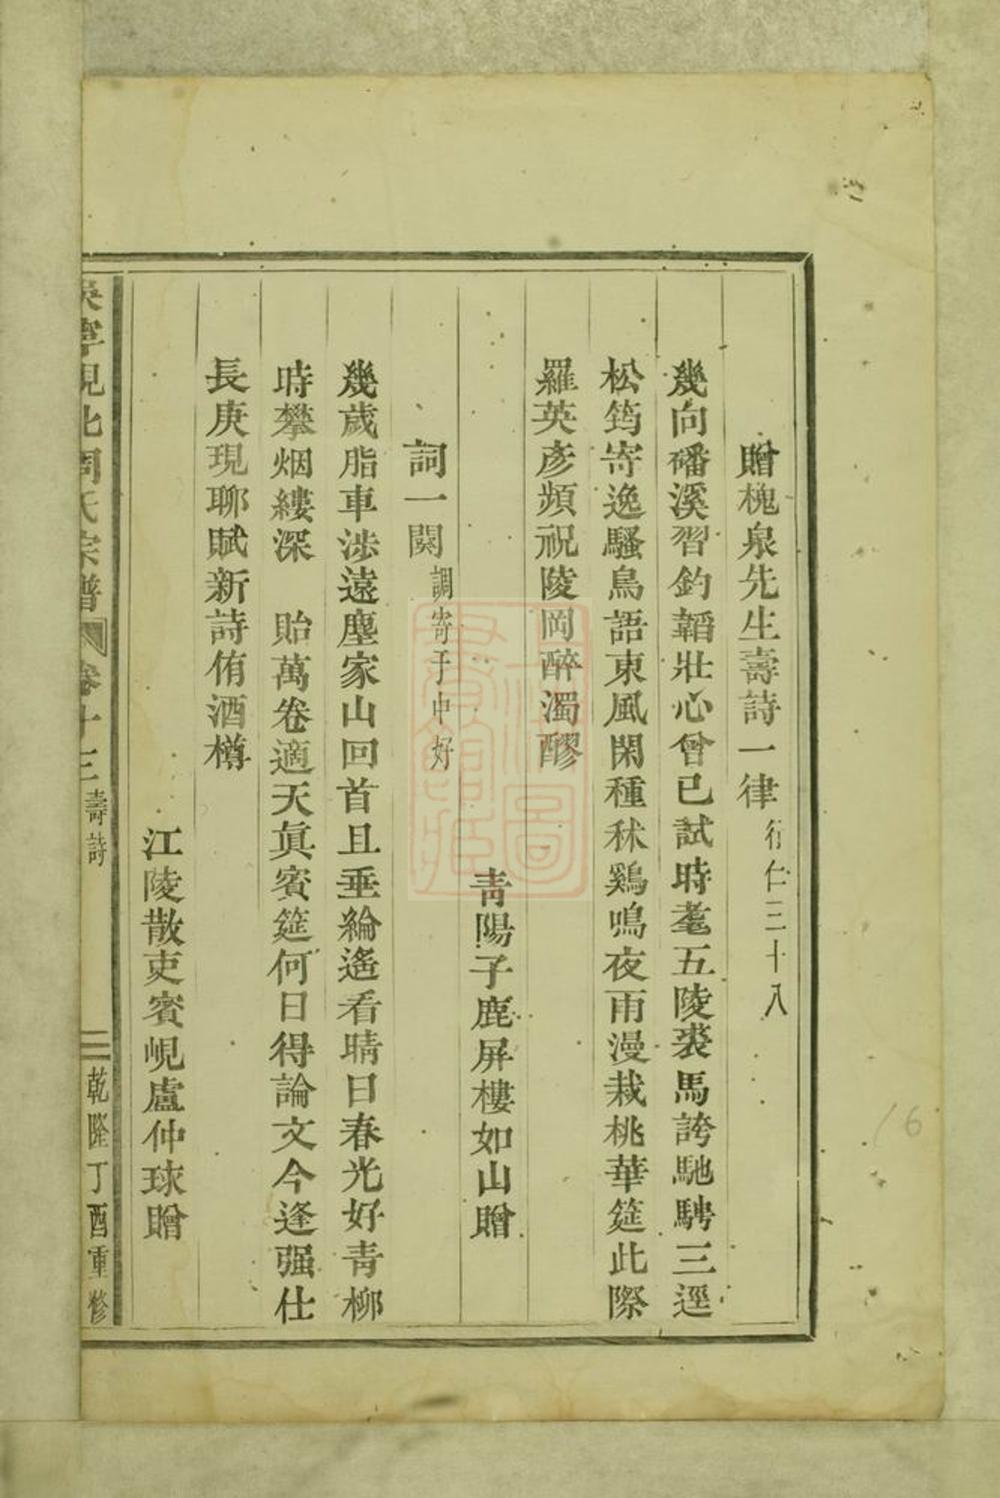 贈槐泉先生壽詩一律 衍仁三十八
幾向磻溪習釣韜壯心曾已試時髦五陵裘馬誇馳騁三逕
松筠寄逸騷鳥語東風閑種秫鷄鳴夜雨漫栽桃華筵此際
羅英彥頻祝陵岡醉濁醪
青陽子鹿屏樓如山贈
詞一闋 調寄于中好
幾歲脂車涉遠塵家山回首且垂綸遙看晴日春光好青柳
時攀烟縷深 貽萬卷適天眞賓筵何日得論文今逢强仕
長庚現聊賦新詩侑酒樽
江陵散吏賓峴盧仲球贈
吳寧峴北周氏宗譜 卷十三 壽詩 三 乾隆丁酉重修
16